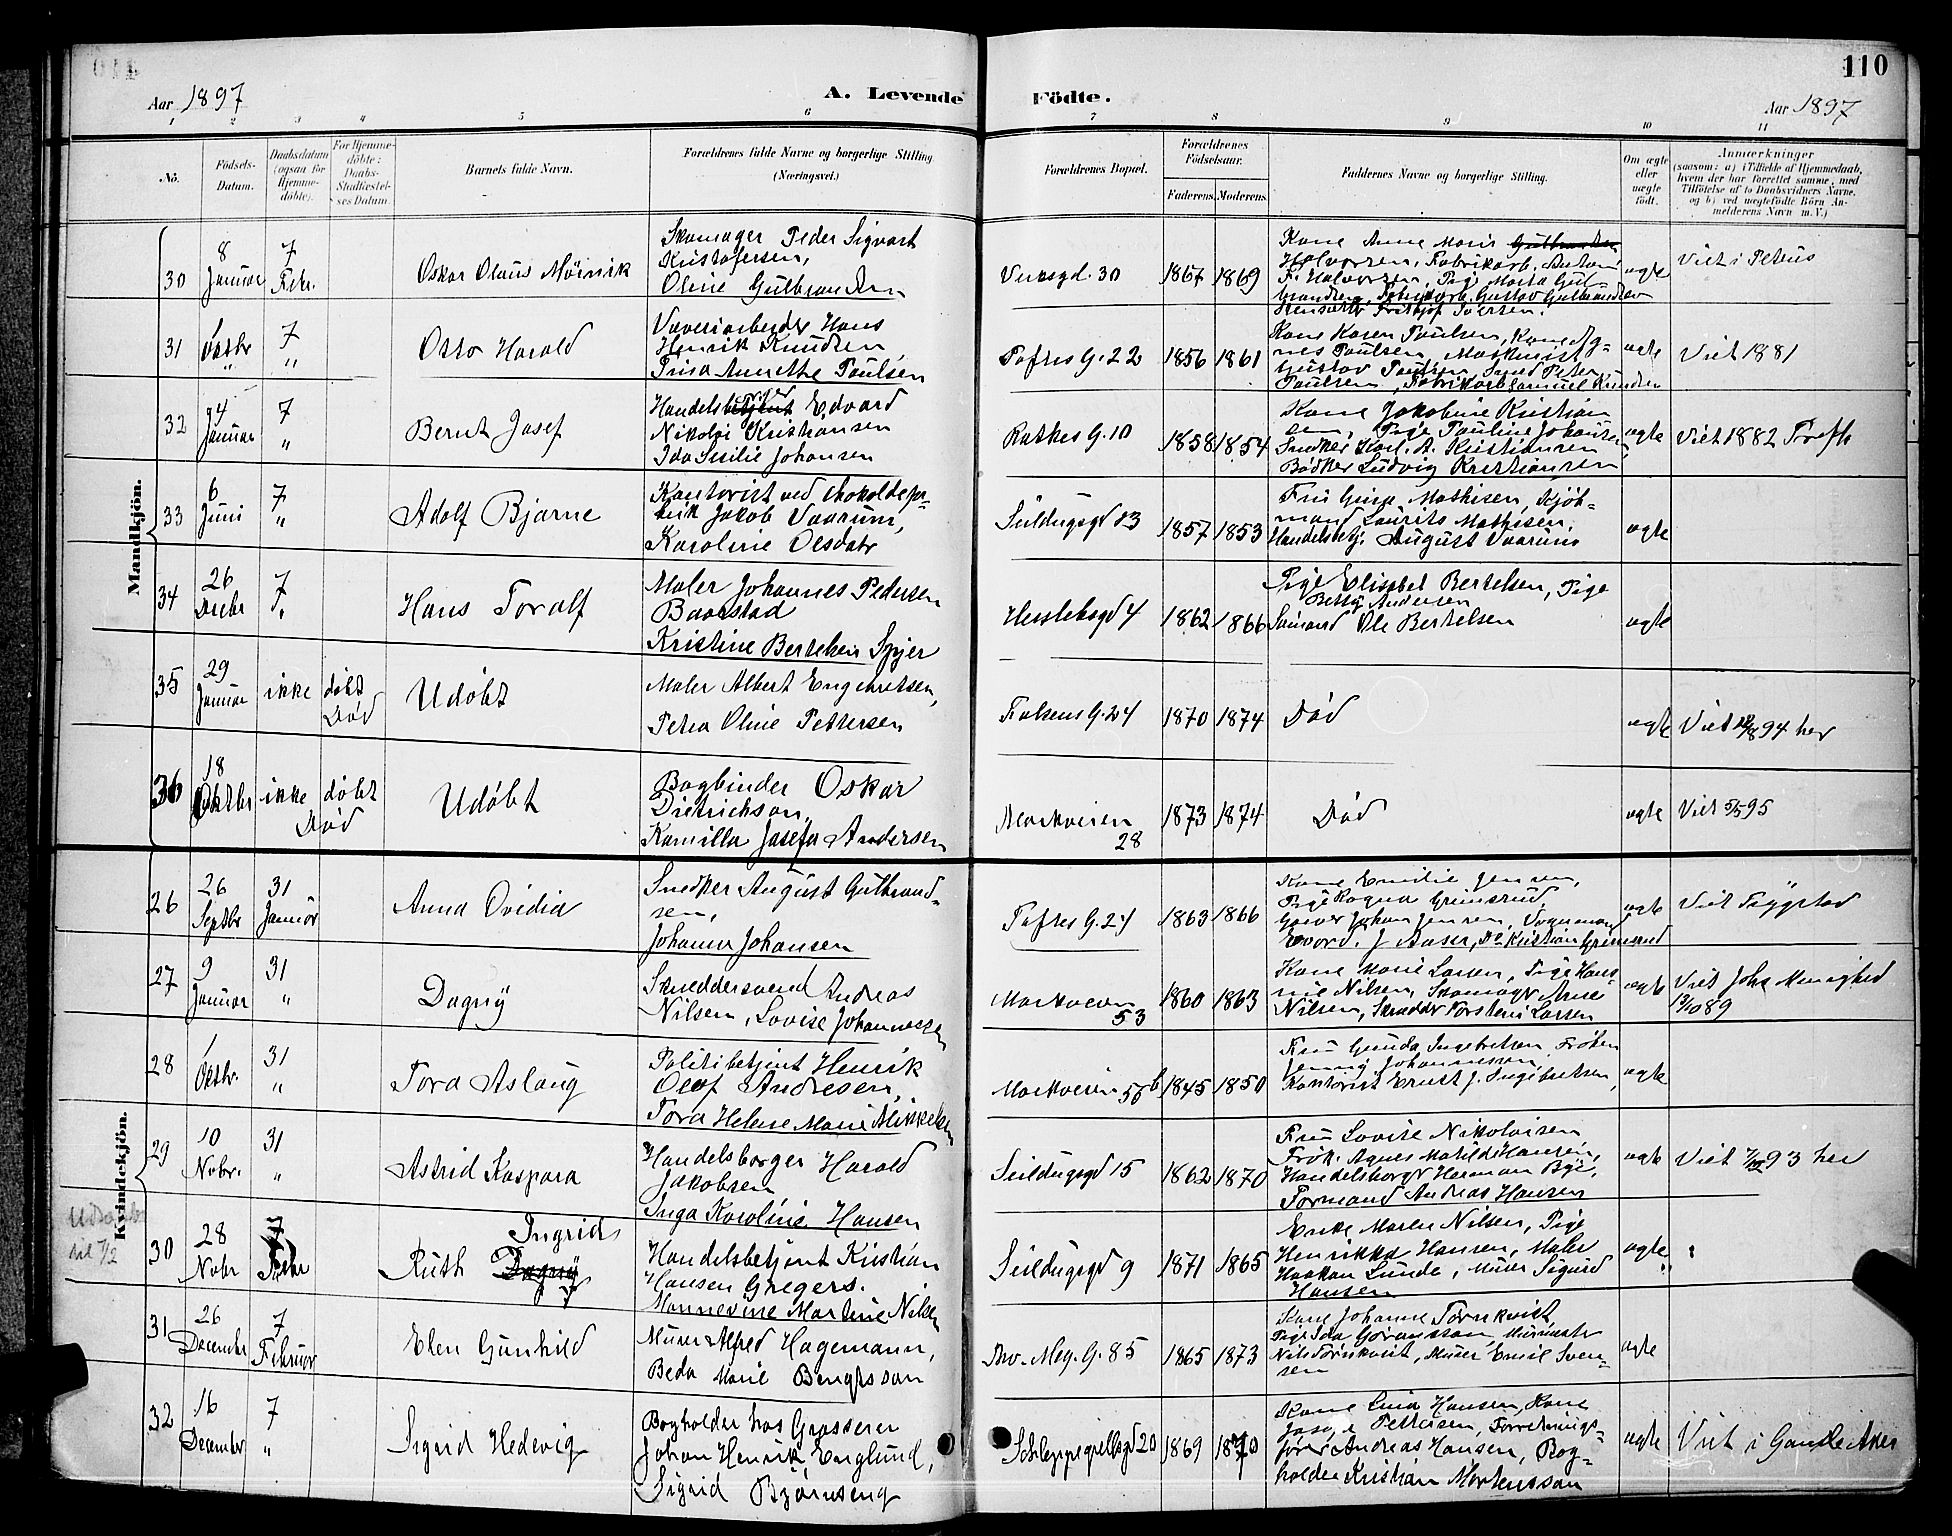 110
Aar 1897
A. Levende Födte.
Aar 1897
1 2 3 4 5 6 7 8 9 10 11
No.
Födsels-Datum.
Daabsdatum (ogsaa for Hjemme-döbte).
For Hjemme-döbte: Daabs-Stadfæstel-ses Datum.
Barnets fulde Navn.
Forældrenes fulde Navne og borgerlige Stilling (Næringsvei.)
Forældrenes Bopæl.
Forældrenes Födselsaar.
Faderens. Moderens.
Faddernes Navne og borgerlige Stilling.
Om ægte eller uægte födt.
Anmærkninger
(saasom: a) i Tilfælde af Hjemmedaab, hvem der har forrettet samme, med Tilföielse af to Daabsvidners Navne, og b) ved uægtefödte Börn Anmelderens Navn m. V.)
Mandkjön.
30
8 Januar
7 Febr.
Oskar Olaus Møinik
Skomager Peder Sigvart
Kristofersen,
Oline Gulbrandsen
Verksgd. 30
1867 1869
Kone Anne Marie
Halvorsen, Fabrikarb. Anton
F. Halvorsen, Pige Marta Gul-
brandsen, Fabrikarb. Gustav Gulbrandsen
ægte
Viet i Petrus
31
7 "
Otto Harald
Væveriarbeider Hans
Henrik Knudsen,
Trina Annethe Paulsen
Toftes G. 22
1856 1861
Kone Karen Paulsen, Kone Ag-
nes Paulsen, Maskinist
Gustav Paulsen, Smed Peter
Paulsen, Fabrikarb Samuel Knudsen
ægte
Viet 1881
32
Januar
7 "
Bernt Josef
Edvard
Nikolai Kristiansen
Ida Sesilie Johansen
Ratkes G. 10
1858 1854
Kone Jakobine Kristian
sen, Pige Pauline Johansen
Snedker Karl. A. Kristiansen
Bødker Ludvig Kristiansen
ægte
Viet 1882
33
6 Juni
7 "
Adolf Bjarne
Kontorist ved Chokoladefa-
brik Jakob Vaarum,
Karoline Olsdatr
Seildugsgd 13
1857 1853
Mathisen, Kjøb-
mand Laurits Mathisen,
Handelsbtj. August Vaarum
ægte
34
26 Decbr
7 "
Hans Toralf
Maler Johannes Pedersen
Baarstad
Kristine Bertelsen
Hesselbsgd 4
1862 1866
Pige Elisabet Bertelsen, Pige
Betsy Andersen
Sømand Ole Bertelsen
ægte
35
29 Januar
ikke døbt
Død
Udøbt
Maler Albert Engebretsen,
Petra Oline Pettersen
Falsens G. 24
1870 1874
Død
ægte
Viet 94 her
36
18 Oktbr
ikke døbt
Død
Udøbt
Bogbinder Oskar
Dietrichson,
Kamilla Josefa Andersen
Markveien
28
1873 1874
Død
ægte
Viet 5/5 95
Kvindekjön.
26
26 Septbr
31 Januar
Anna Ovidia
Snedker August Gulbrand-
sen,
Johanne Johansen
Toftes G. 24
1863 1866
Kone Emilie Jensen,
Pige Ragna Grimsrud,
Johan Jensen, Vognmand
Edvard. J Aaser, Do Kristian Grimsrud
ægte
Viet Trygstad
27
9 Januar
31 "
Dagny
Skreddersvend Andreas
Nilsen, Lovise Johannessen
Markveien
53
1860 1863
Kone Marie Larsen, Pige Han-
Nilsen, Skomager Arne
Nilsen, Skrædder Torstein Larsen
ægte
Viet Johs Menighed
13/10 89
28
1 Oktbr.
31 "
Tora Aslaug
Politibetjent Henrik
Olaf Andresen,
Tora Helene Marie Mikkelsen
Markveien 56 b
1845 1850
Fru Gunda Ingebretsen, Frøken
Jenny Johannessen,
Kontorist Ernst J. Ingebretsen,
ægte
29
10 Nobr.
31 "
Astrid Kaspara
Handelsborger Harald
Jakobsen
Inga Karoline Hansen
Seildugsgd 15
1862 1870
Fru Lovise Nikolaisen
Frøk. Agnes Matilde Hansen,
Handelsborgr Herman Bye,
Formand Andreas Hansen
ægte
Viet 93 her
til 7/2
30
28 Nobr
7 Febr
Ingrid
Ruth Dagny
Handelsbetjent Kristian
Hansen Gregers.
Mannevine Martine Nilsen
Seildugsgd 9
1871 1865
Enke Maren Nilsen, Pige
Henrikke Hansen, Maler
Haakon Lunde, Murer Sigurd
Hansen
ægte
31
26 December
7 Februar
Elen Gunhild
Murer Alfred Hagemann,
Beda Marie Bengtsson
Thv. Mey. G. 85
1865 1873
Kone Johanne Törnkvist,
Pige Ida Göransson, Murmester
Nils Törnkvist, Murer Emil Sven-
sen
ægte
32
16 December
7 "
Sigrid Hedevig
Bogholder hos Grosserer
Johan Henrik Englund,
Sigrid Bjørnseng
Schleppegrellsgd 20
1869 1870
Kone Lina Hansen, Kone
Pettersen, Forretnings-
fører Andreas Hansen, Bog-
holder Kristian Mortensson
ægte
Viet i Gamle Aker